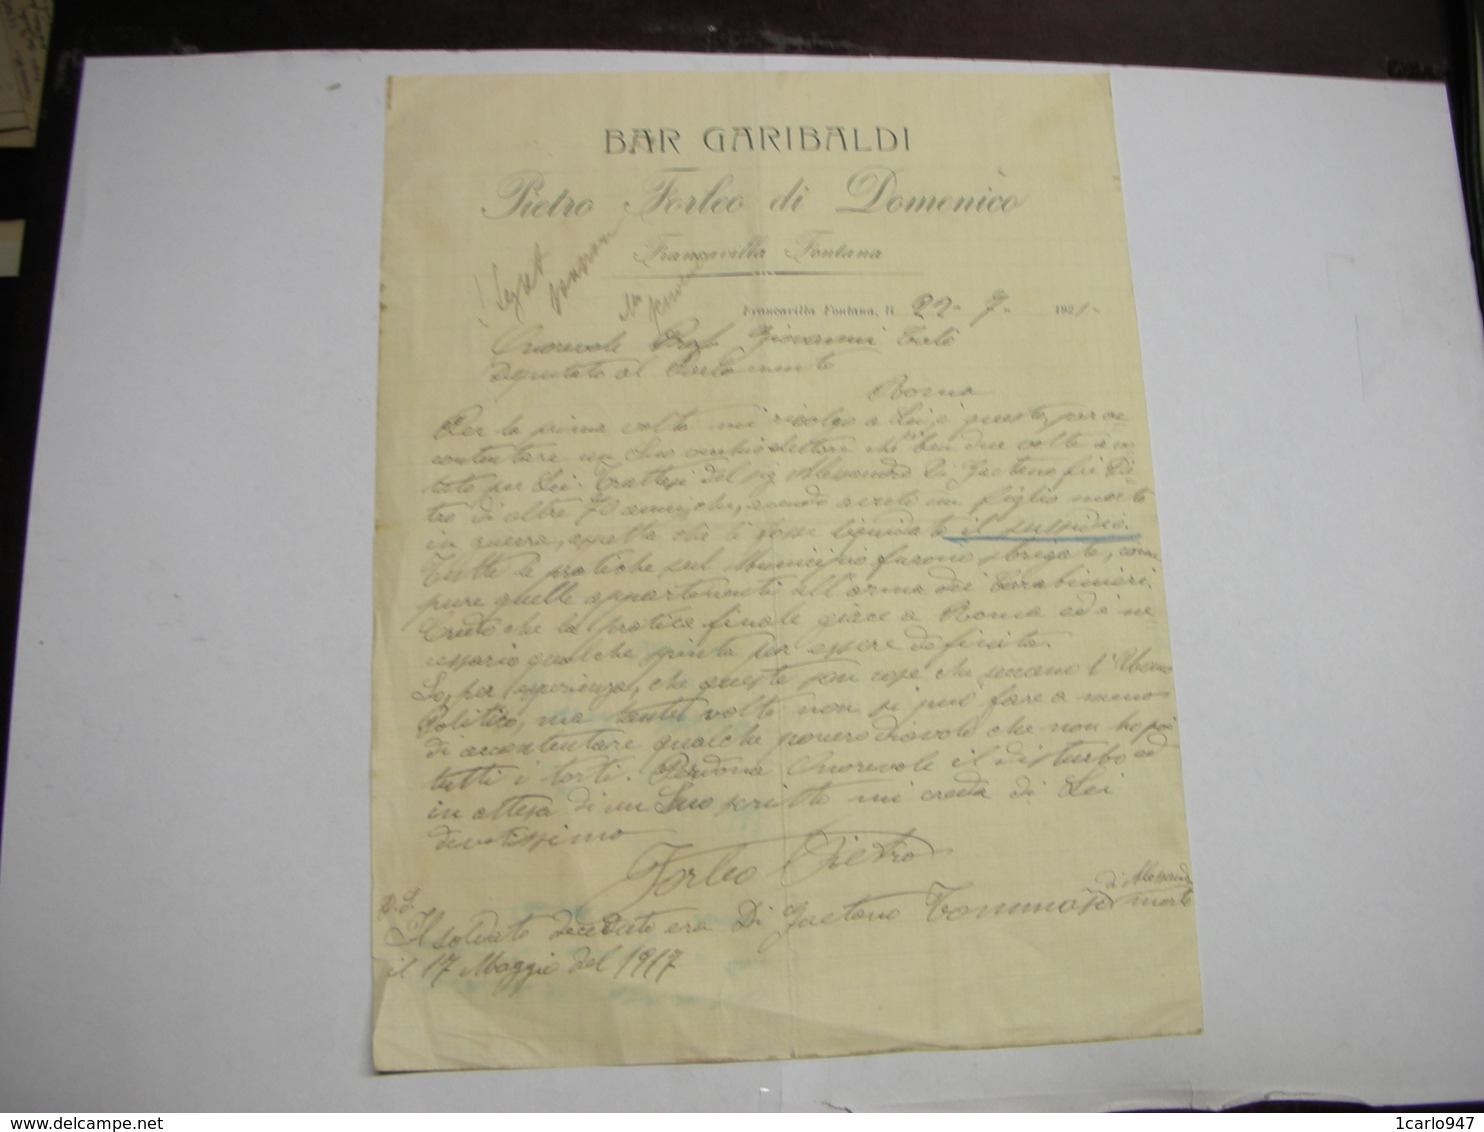 BAR GARIBALDI
Pietro Forleo di Domenico
Francavilla Fontana
Francavilla Fontana, li 22-7-1921-
Onorevole Prof. Giovanni
Deputato al Parlamento
Roma
Per la prima volta mi rivolgo a Lei, e questo, per ac
contentare un Suo vecchio elettore che ben due volte à vo
tato per Lei. Trattasi del sig. Alessandro Di Gaetano fu Pie
tro di oltre 70 anni, che, avendo avuto un figlio morto
in guerra, aspetta che le fosse liquidato il sussidio.
Tutte le pratiche sul Municipio furono sbrigate, come
pure quelle appartenenti all'arma dei Carabinieri.
Credo che la pratica finale giace a Roma ed è ne
cessario qualche spinta per essere definita.
So, per esperienza, che queste son cose che seccano l'Uomo
Politico, ma tante volte non si può fare a meno
di accontentare qualche povero diavolo che non ha poi
tutti i torti. Perdona Onorevole il disturbo ed
in attesa di un Suo scritto mi creda di Lei
devotissimo
Forleo Pietro
P.S.
Il soldato deceduto era Di Gaetano Tommaso di Alessandro morto
il 17 Maggio del 1917
www.delcampe.net
1carlo947